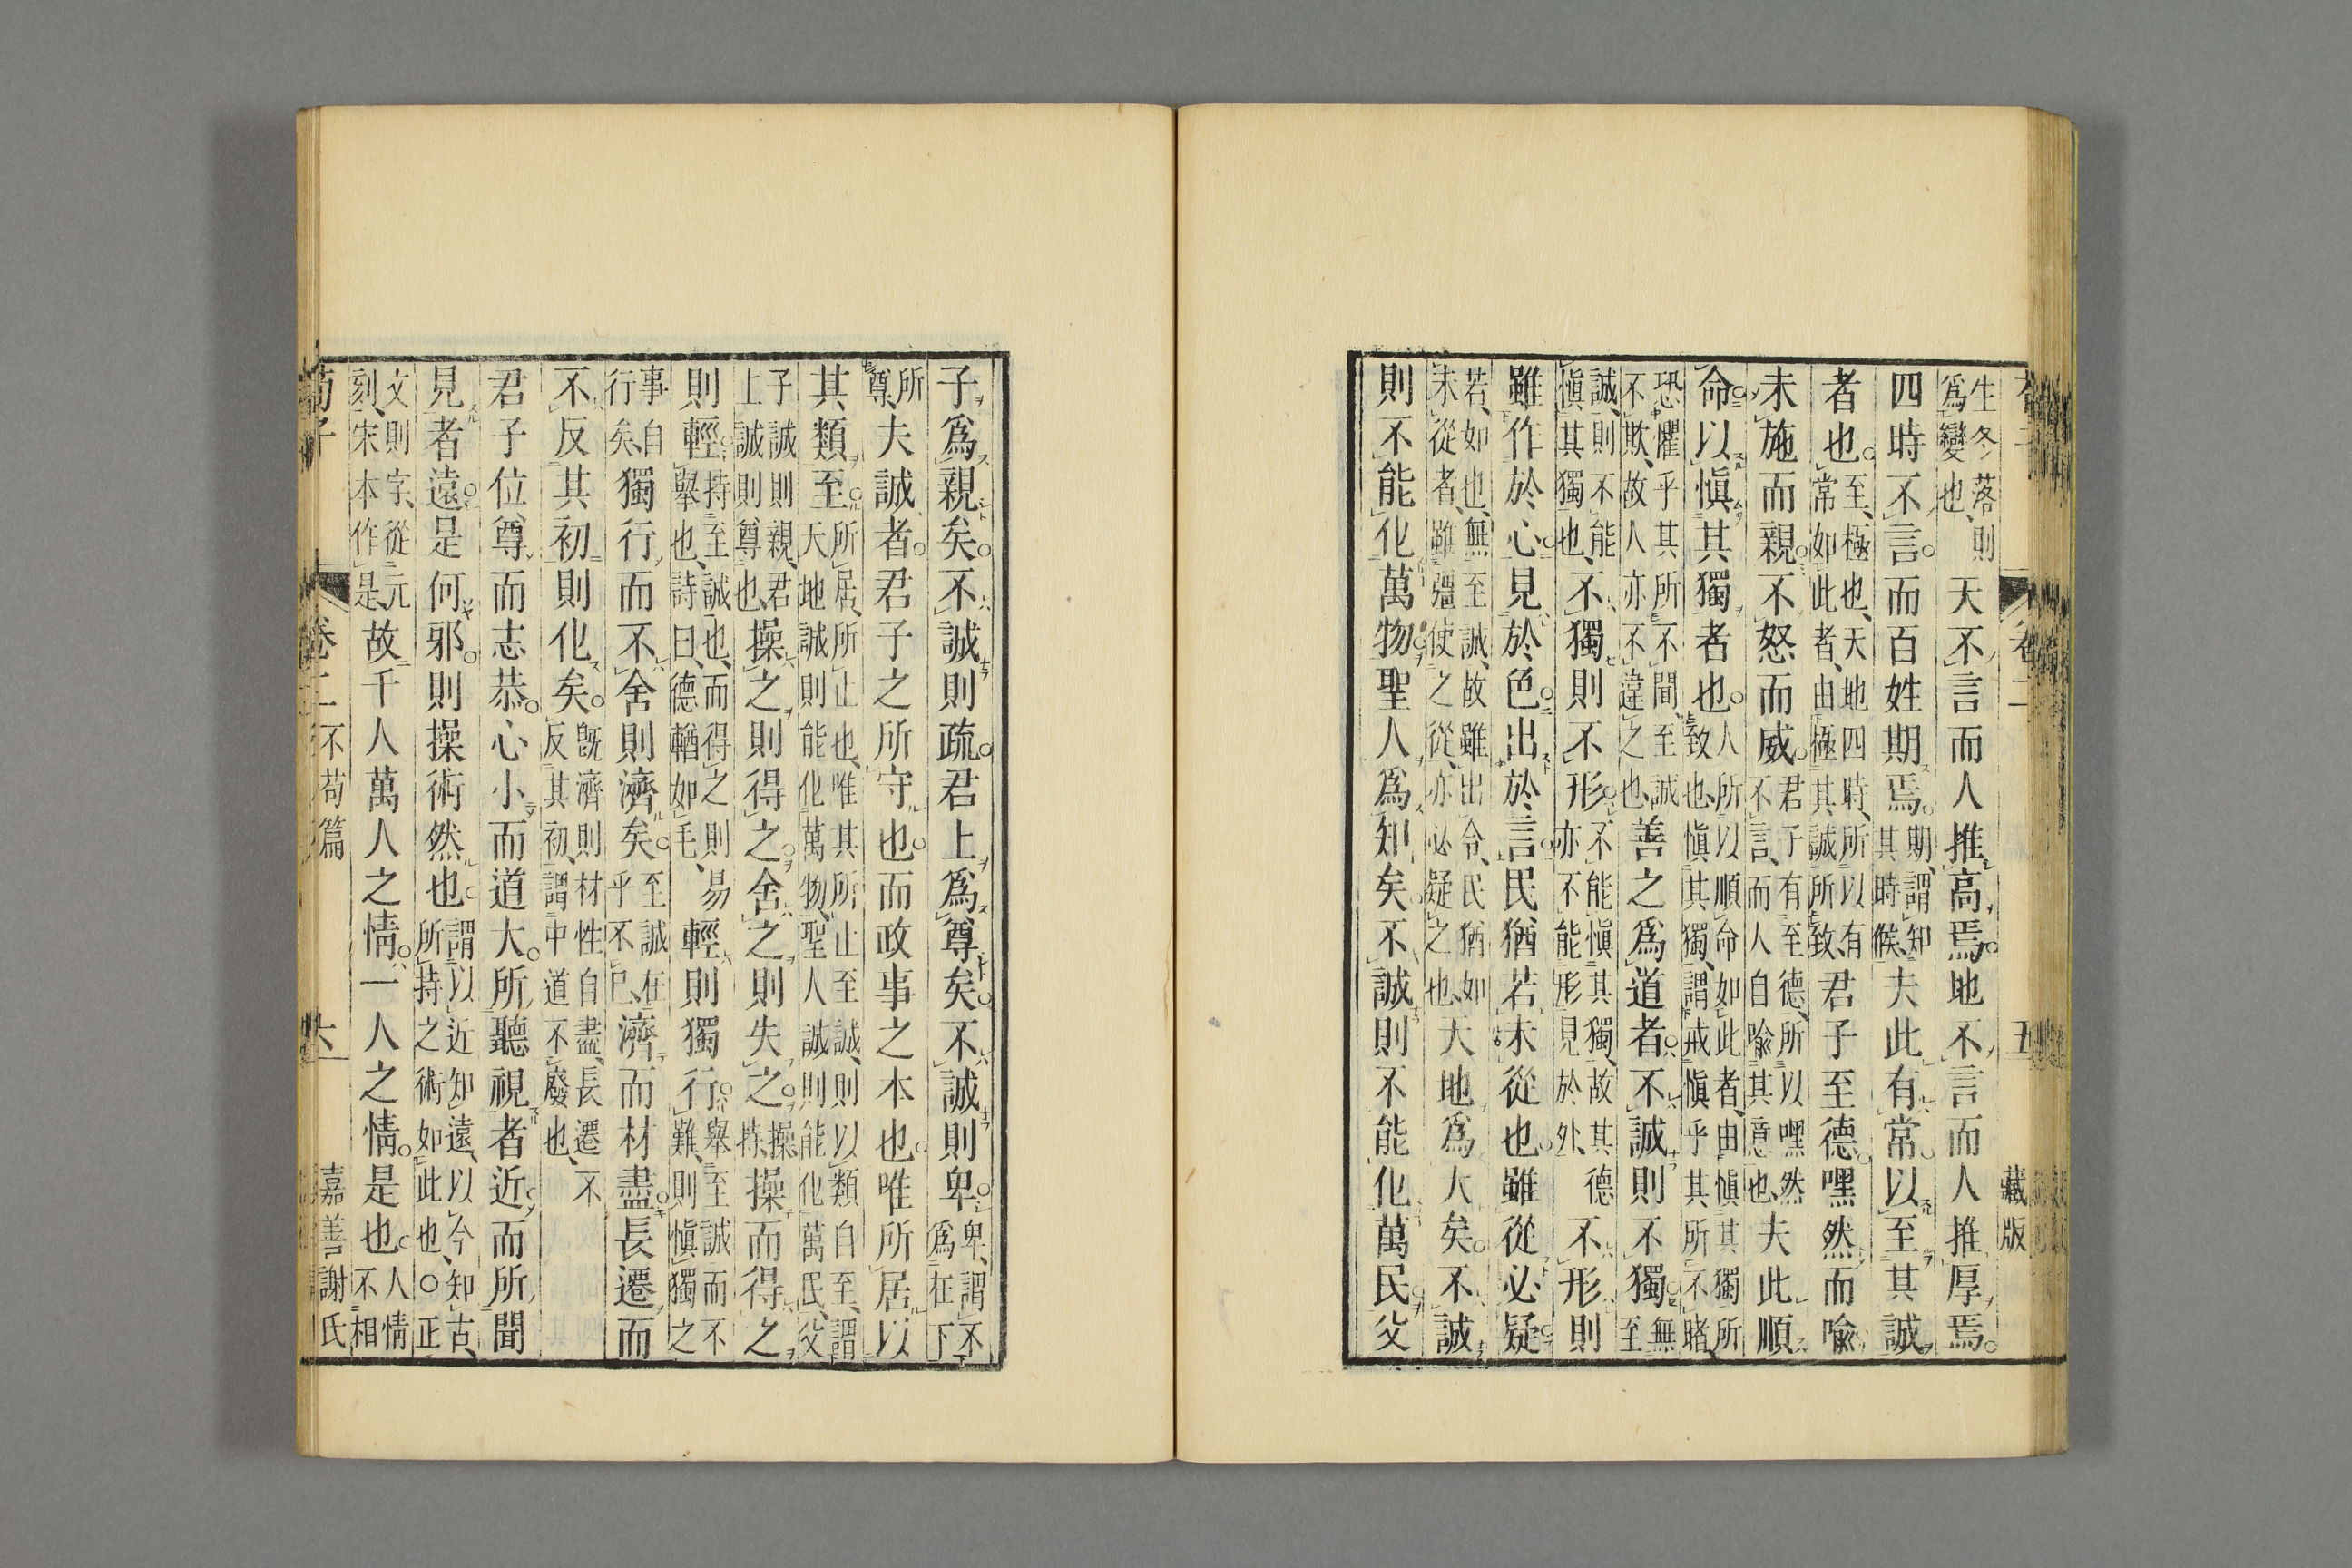 生冬落、則爲變也、天不言而人推高焉。地不言而人推厚焉。
四時不言。而百姓期焉。期、謂知其時候、夫此有常。以至其誠
者也。至、極也、天地四時、所以有常如此者、由極其誠所致、君子至德。嘿然而喩
未施而親。不怒而威。君子有至德、所以嘿然不言、而人自喩其意也、夫此順
命以愼其獨者也。人所以順命如此者、由愼其獨所致也、愼其獨、謂戒愼乎其所不睹、
恐懼乎其所不聞、至誠不欺、故人亦不違之也、善之爲道者。不誠則不獨。無至
誠、則不能愼其獨也、不獨則不形。不能愼其獨、故其德亦不能形見於外、不形則
雖作於心。見於色。出於言。民猶若未從也。雖從必疑。
若、如也、無至誠、故雖出令、民猶如未從者、雖彊使之從、亦必疑之也、天地爲大矣。不誠
則不能化萬物。聖人爲知矣。不誠則不能化萬民。父
卷二
五
藏版
子爲親矣。不誠則疏。君上爲尊矣。不誠則卑。卑、謂不爲在下
所尊、夫誠者。君子之所守也。而政事之本也。唯所居以
其類至。所居、所止也、唯其所止至誠、則以類自至、謂天地誠則能化萬物、聖人誠則能化萬民、父
子誠則親、君上誠則尊也、操之則得之。舍之則失之。操持、操而得之
則輕。持至誠也、而得之則易舉也、詩曰、德輶如毛、輕則獨行。舉至誠而不難、則愼獨之
事自行矣、獨行而不舍則濟矣。至誠在乎不已、濟而材盡。長遷而
不反其初則化矣。旣濟則材性自盡、長遷不反其初、謂中道不廢也、
君子位尊而志恭。心小而道大。所聽視者近。而所聞
見者遠。是何邪。則操術然也。謂以近知遠、以今知古、所持之術如此也、○正
文則字、從元刻、宋本作是、故千人萬人之情。一人之情。是也。人情不相
荀子
卷二
不苟篇
六
嘉善謝氏